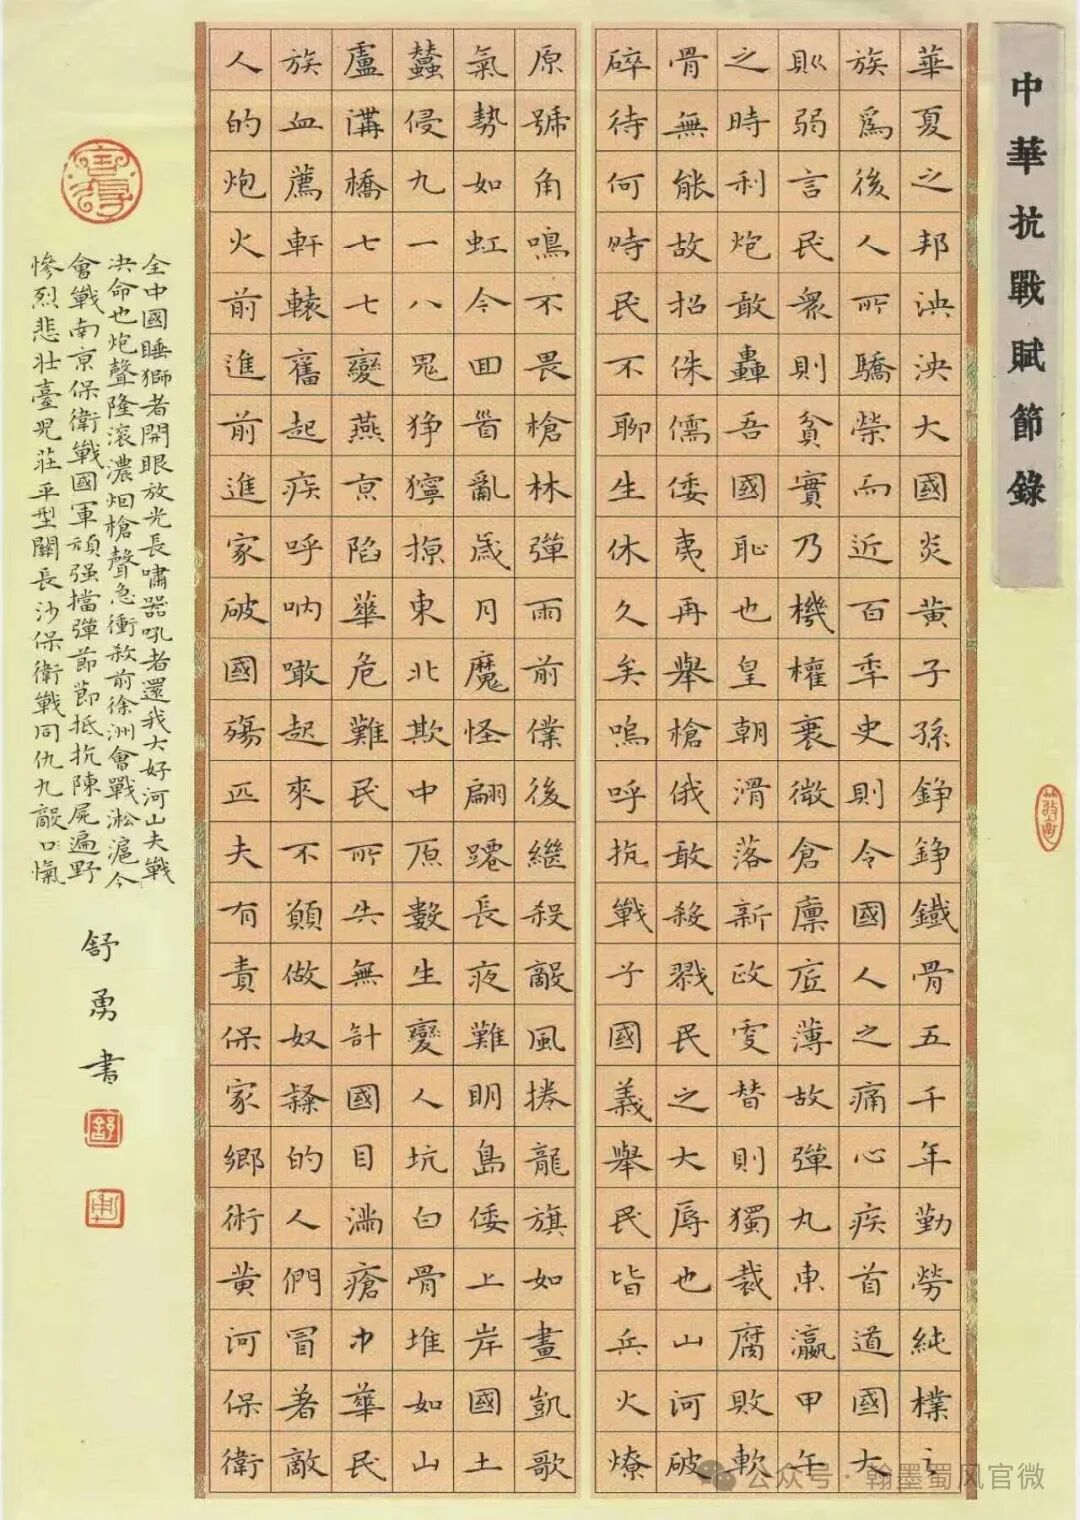 中華抗戰賦節錄
華夏之邦泱泱大國炎黃子孫錚錚鐵骨五千年勤勞純樸之
族爲後人所驕榮而近百年史則令國人之痛心疾首道國大
則弱言民衆則貧實乃機權衰微倉廩庢薄故彈丸東瀛甲午
之時利炮敢轟吾國恥也皇朝滑落新政雯替則獨裁腐敗軟
骨無能故招侏儒倭夷再舉槍俄敢殺戮民之大辱也山河破
碎待何時民不聊生休久矣嗚呼抗戰于國義舉民皆兵火燎
原號角鳴不畏槍林彈雨前僕後繼殺敵風捲龍旗如畫凱歌
氣勢如虹今回首亂歲月魔怪翩躚長夜難明島倭上岸國土
蠶侵九一八鬼猙獰掠東北欺中原數生變人坑白骨堆如山
盧溝橋七七變燕京陷華危難民所失無計國目滿瘡中華民
族血薦軒轅舊起疾呼吶噉起來不願做奴隸的人們冒著敵
人的炮火前進前進家破國殤匹夫有責保家鄉衛黃河保衛
全中國睡獅者開眼放光長嘯器吼者還我大好河山夫戰
決命也炮聲隆滾濃烟槍聲急衝殺前徐洲會戰淞滬今
會戰南京保衛戰國軍頑强擋彈節節抵抗陳屍遍野
慘烈悲壯臺兒莊平型關長沙保衛戰同仇九敵口愾
舒勇書
公众号·翰墨蜀风官微